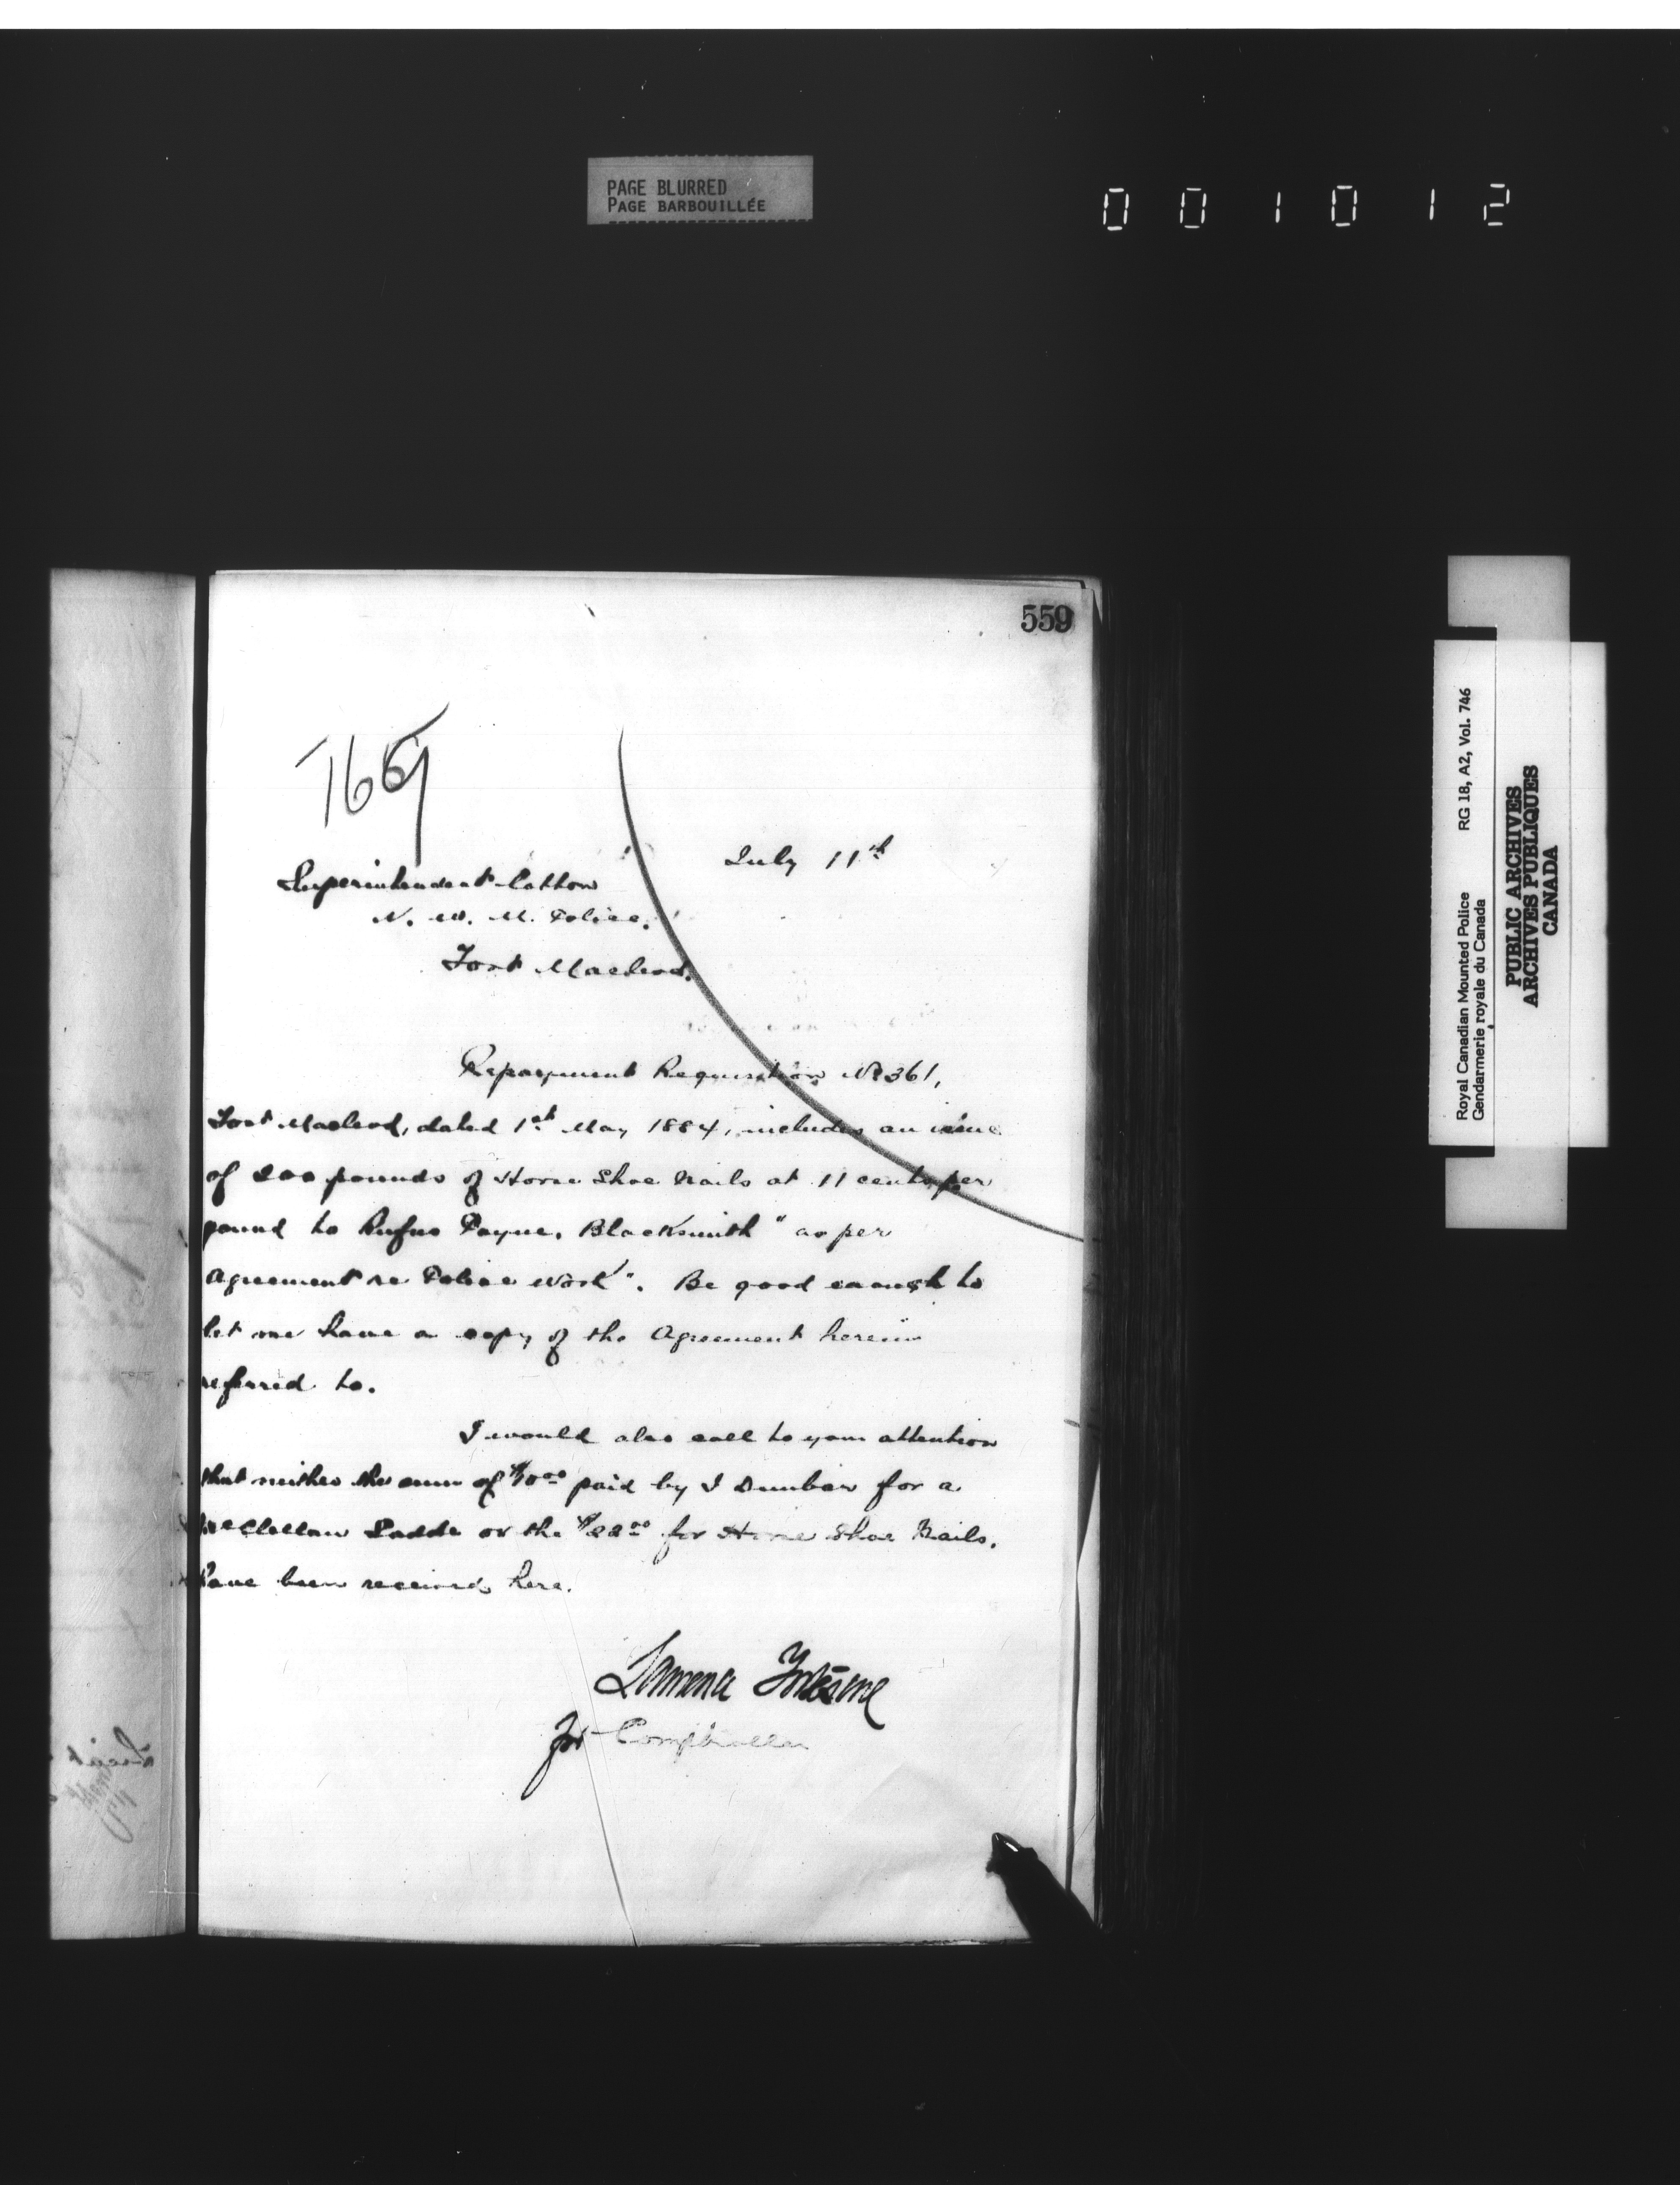 PAGE BLURRED
PAGE BARBOUILLÉE
0 0 1 0 1 2
559
7669
July 11th
Superintendent Cotton
N. W. M. Police.
Fort Macleod.
Repayment Requisition No 361,
Fort Macleod, dated 1st May 1884, includes an issue
of 200 pounds of Horse Shoe Nails at 11 cents per
pound to Rufus Payne, Blacksmith "as per
Agreement re Police Work". Be good enough to
let me have a copy of the Agreement herein
referred to.
I would also call to your attention
that neither the sum of $10.00 paid by J Dunbar for a
McClellan Saddle or the $22.00 for Horse Shoe Nails,
have been received here.
for Comptroller
Royal Canadian Mounted Police RG 18, A2, Vol. 746
Gendarmerie royale du Canada
PUBLIC ARCHIVES
ARCHIVES PUBLIQUES
CANADA